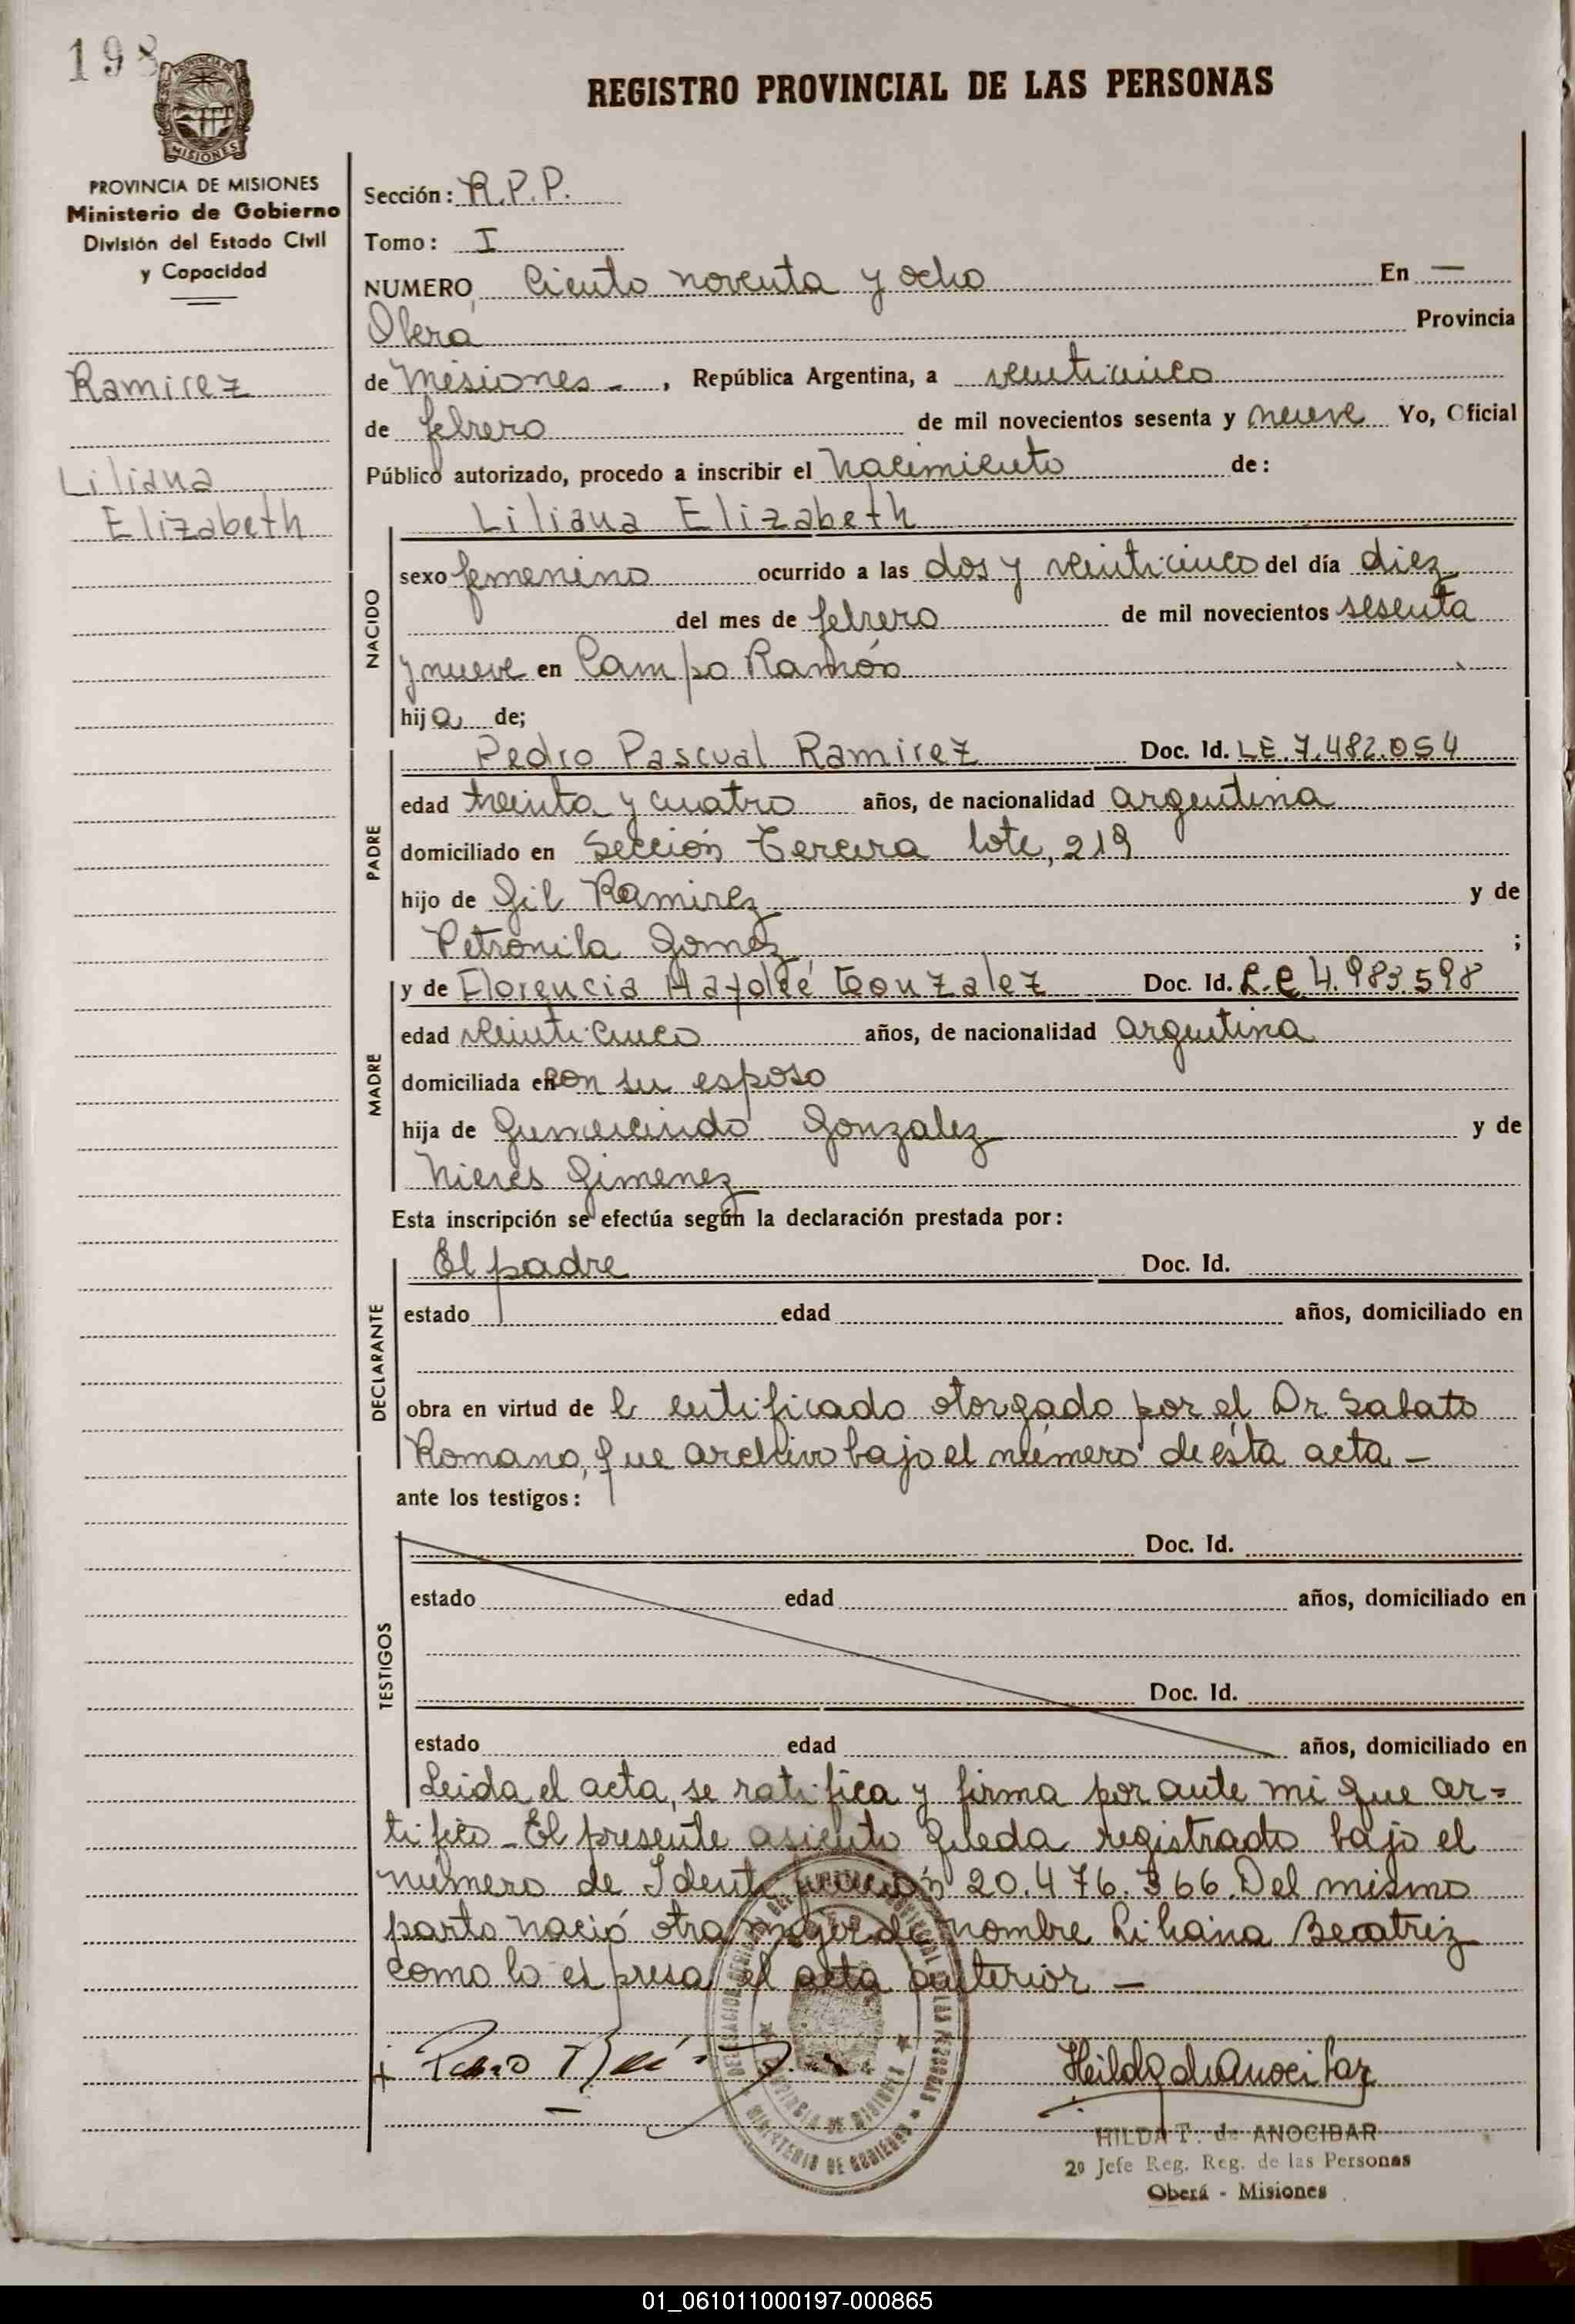 198
REGISTRO PROVINCIAL DE LAS PERSONAS
PROVINCIA DE MISIONES
Ministerio de Gobierno
División del Estado Civil
y Capacidad
Ramirez
Liliana
Elizabeth
Sección: R.P.P.
Tomo: I
NUMERO Ciento noventa y ocho En —
Oberá Provincia
de Misiones -, República Argentina, a veinticinco
de febrero de mil novecientos sesenta y nueve Yo, Oficial
Público autorizado, procedo a inscribir el nacimiento de:
NACIDO
Liliana Elizabeth
sexo femenino ocurrido a las dos y veinticinco del día diez
del mes de febrero de mil novecientos sesenta
y nueve en Campo Ramón
hija de;
PADRE
Pedro Pascual Ramirez Doc. Id. LE.7.482.054
edad treinta y cuatro años, de nacionalidad argentina
domiciliado en Sección Tercera lote, 219
hijo de Gil Ramirez y de
Petronila Gomez ;
MADRE
y de Florencia Haydeé Gonzalez Doc. Id. L.C 4.983.598
edad veinticinco años, de nacionalidad argentina
domiciliada en con su esposo
hija de Gumercindo Gonzalez y de
Nieves Gimenez
Esta inscripción se efectúa según la declaración prestada por:
DECLARANTE
El padre Doc. Id.
estado edad años, domiciliado en
obra en virtud de certificado otorgado por el Dr. Sabato
Romano, que archivo bajo el número de ésta acta -
ante los testigos:
TESTIGOS
Doc. Id.
estado edad años, domiciliado en
Doc. Id.
estado edad años, domiciliado en
Leida el acta, se ratifica y firma por ante mi que cer=
tifico - El presente asiento queda registrado bajo el
número de Identificación 20.476.366. Del mismo
parto nació otra mujer de nombre Liliana Beatriz
como lo expresa el acta anterior -
HILDA T. de ANOCIBAR
2º Jefe Reg. Reg. de las Personas
Oberá - Misiones
01_061011000197-000865